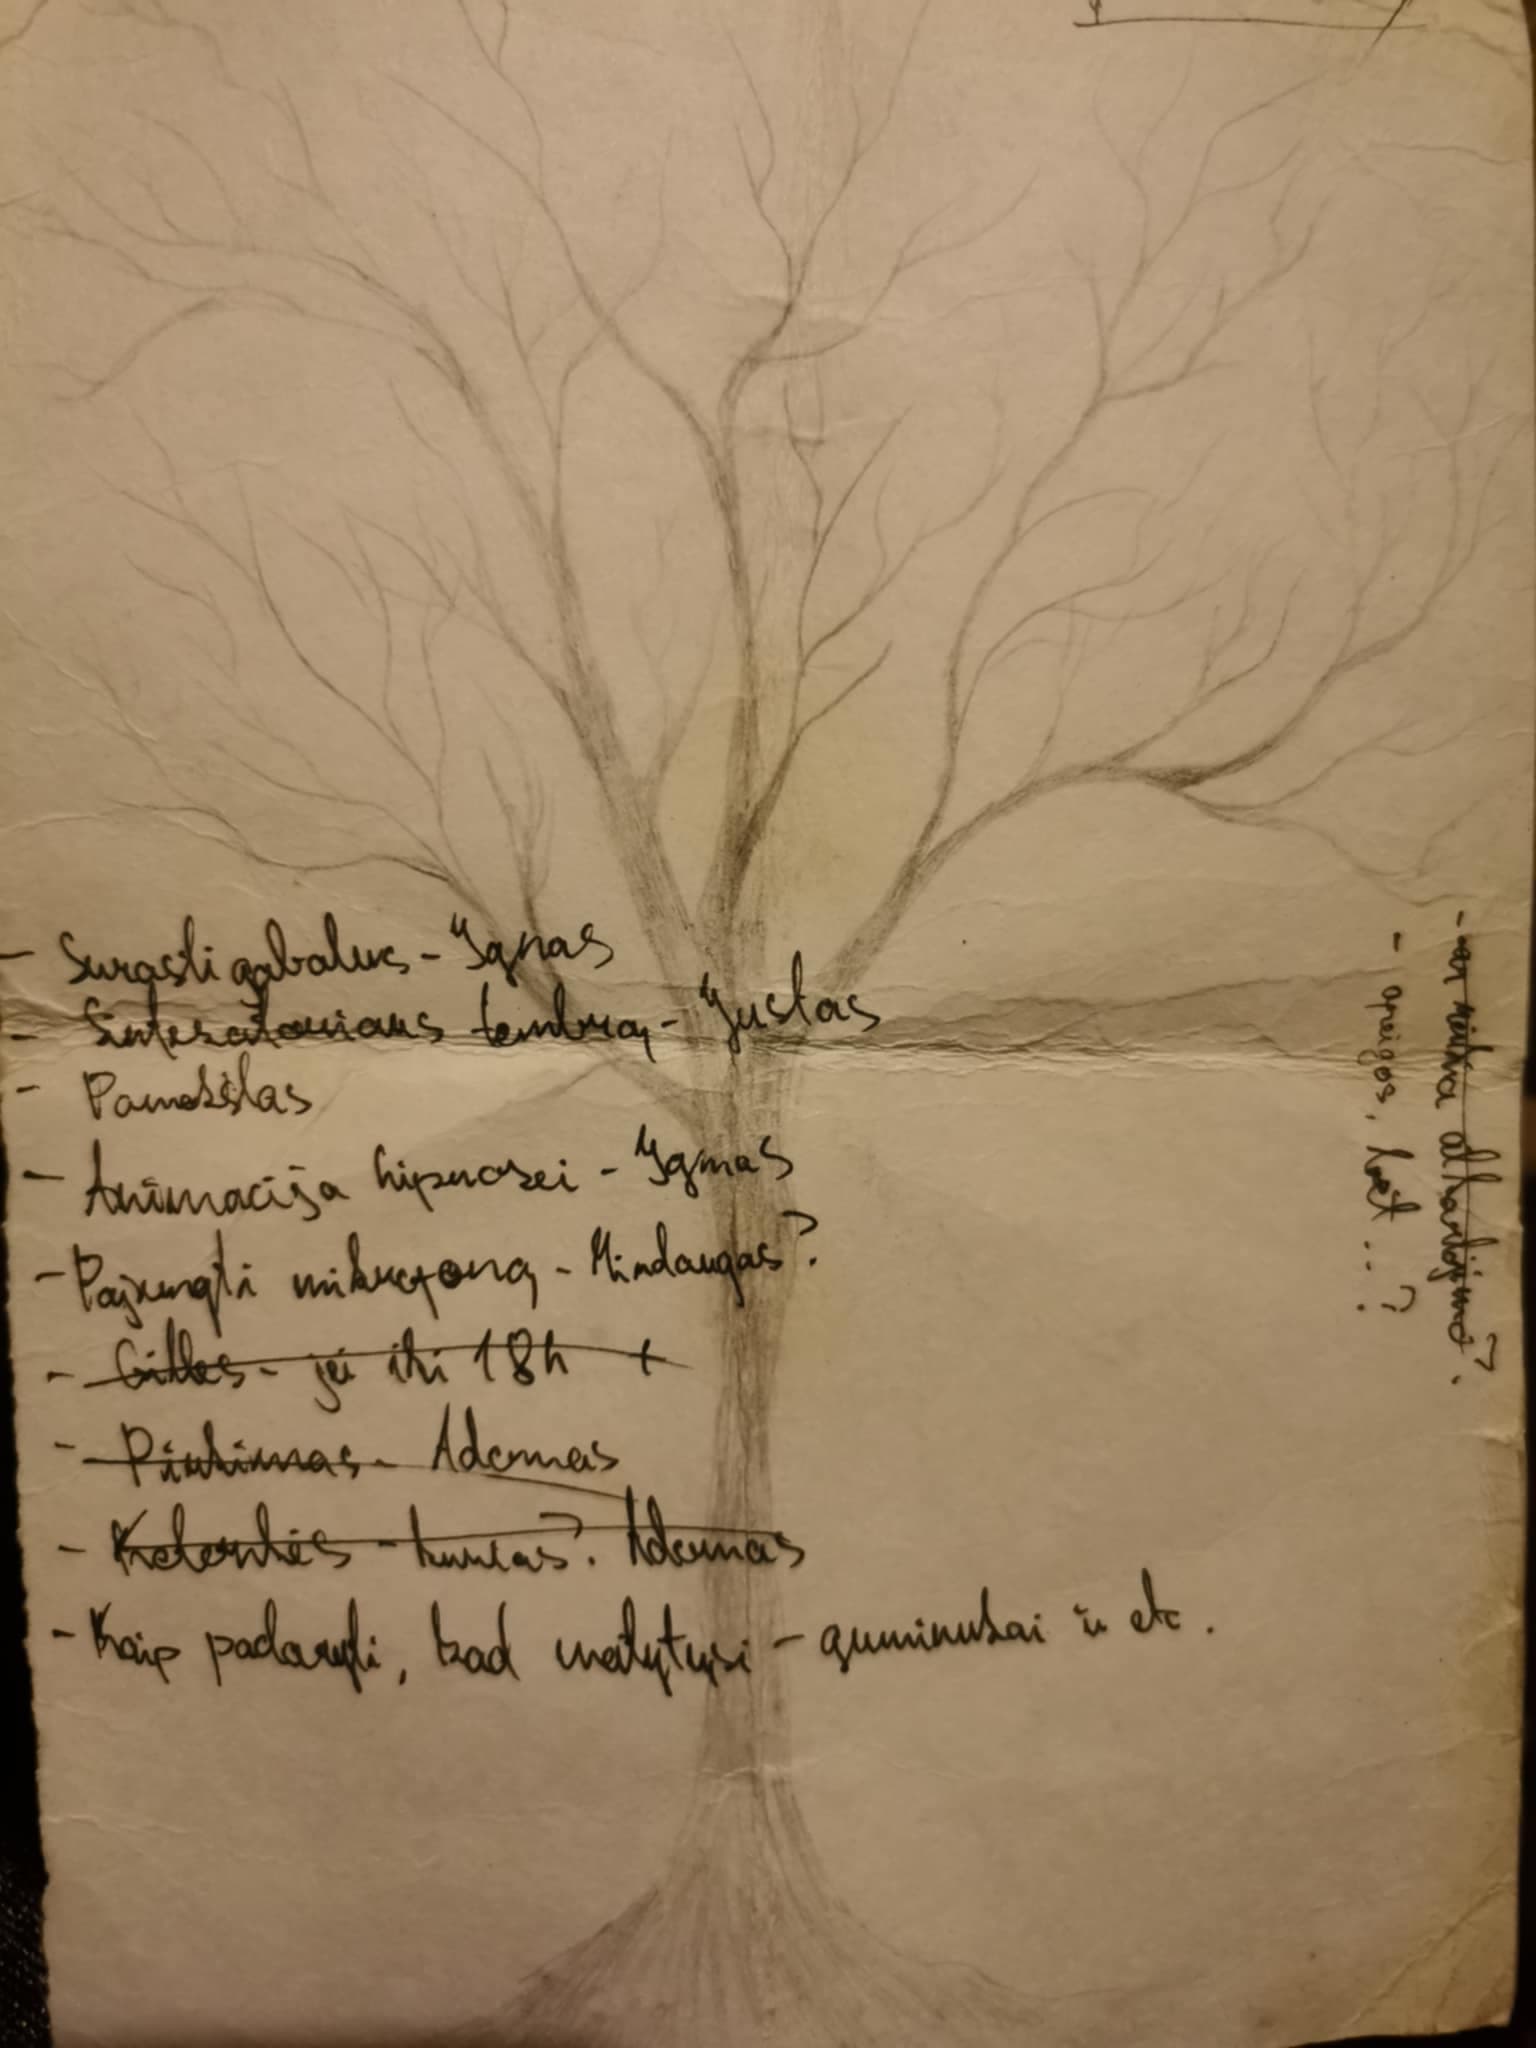 - Surasti gabalus - Ignas
- Sintezatoriaus tembrą - Justas
- Pamokslas
- Animacija hipnozei - Ignas
- Pajungti mikrofoną - Mindaugas?
- Gilles - jei iki 18h +
- Pirkimas - Adomas
- Kelonkės - kurias? Adomas
- Kaip padaryti, kad matytųsi - guminukai ir etc.
- ar reikia atkartojimo?
- apeigos, bet...?